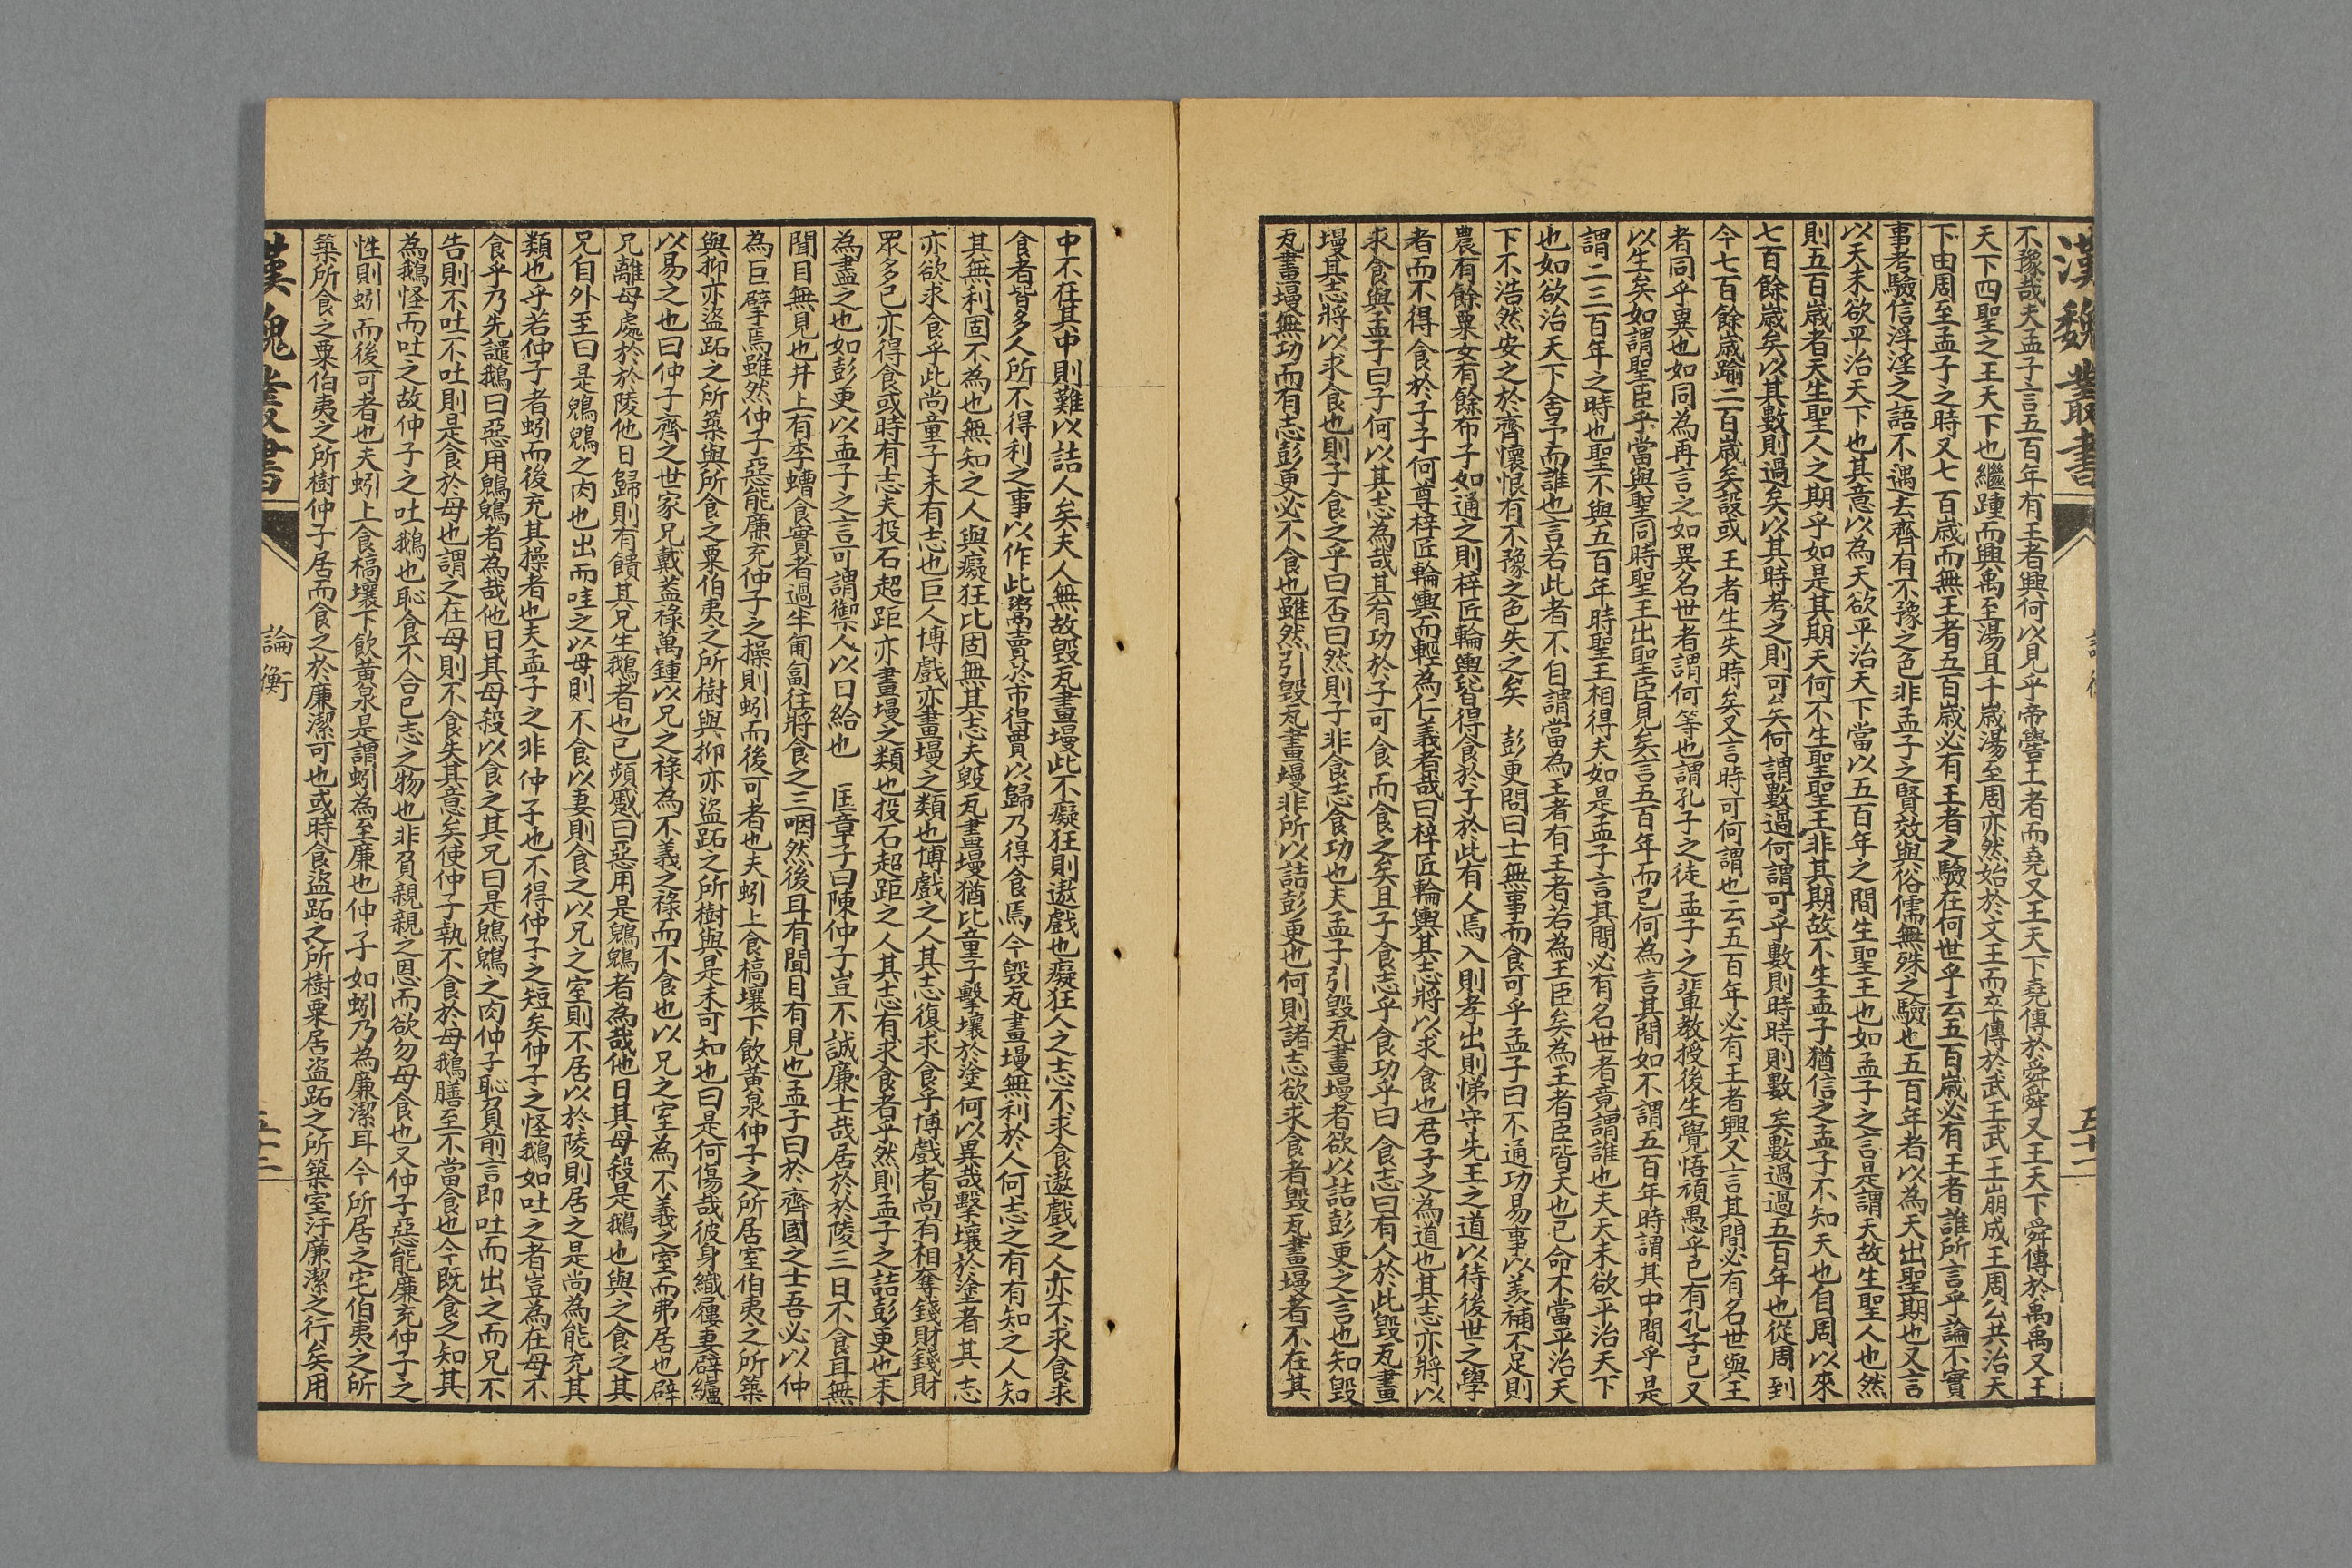 漢魏叢書
五十一
不豫哉夫孟子言五百年有王者興何以見乎帝嚳王者而堯又王天下堯傳於舜舜又王天下舜傳於禹禹又王
天下四聖之王天下也繼踵而興禹至湯且千歲湯至周亦然始於文王而卒傳於武王武王崩成王周公共治天
下由周至孟子之時又七百歲而無王者五百歲必有王者之驗在何世乎云五百歲必有王者誰所言乎論不實
事考驗信浮淫之語不遇去齊有不豫之色非孟子之賢效與俗儒無殊之驗也五百年者以為天出聖期也又言
以天未欲平治天下也其意以為天欲平治天下當以五百年之間生聖王也如孟子之言是謂天故生聖人也然
則五百歲者天生聖人之期乎如是其期天何不生聖聖王非其期故不生孟子猶信之孟子不知天也自周以來
七百餘歲矣以其數則過矣以其時考之則可矣何謂數過何謂可乎數則時時則數矣數過過五百年也從周到
今七百餘歲踰二百歲矣設或王者生失時矣又言時可何謂也云五百年必有王者興又言其間必有名世與王
者同乎異也如同為再言之如異名世者謂何等也謂孔子之徒孟子之輩教授後生覺悟頑愚乎已有孔子己又
以生矣如謂聖臣乎當與聖同時聖王出聖臣見矣言五百年而已何為言其間如不謂五百年時謂其中間乎是
謂二三百年之時也聖不與五百年時聖王相得夫如是孟子言其間必有名世者竟謂誰也夫天未欲平治天下
也如欲治天下舍予而誰也言若此者不自謂當為王者有王者若為王臣矣為王者臣皆天也已命不當平治天
下不浩然安之於齊懷恨有不豫之色失之矣　彭更問曰士無事而食可乎孟子曰不通功易事以羨補不足則
農有餘粟女有餘布子如通之則梓匠輪輿皆得食於子於此有人焉入則孝出則悌守先王之道以待後世之學
者而不得食於子子何尊梓匠輪輿而輕為仁義者哉曰梓匠輪輿其志將以求食也君子之為道也其志亦將以
求食與孟子曰子何以其志為哉其有功於子可食而食之矣且子食志乎食功乎曰食志曰有人於此毀瓦畫
墁其志將以求食也則子食之乎曰否曰然則子非食志食功也夫孟子引毀瓦畫墁者欲以詰彭更之言也知毀
瓦畫墁無功而有志彭更必不食也雖然引毀瓦畫墁非所以詰彭更也何則諸志欲求食者毀瓦畫墁者不在其
中不在其中則難以詰人矣夫人無故毀瓦畫墁此不癡狂則遨戲也癡狂人之志不求食遨戲之人亦不求食求
食者皆多人所不得利之事以作此鬻賣於市得賈以歸乃得食焉今毀瓦畫墁無利於人何志之有有知之人知
其無利固不為也無知之人與癡狂比固無其志夫毀瓦畫墁猶比童子擊壤於塗何以異哉擊壤於塗者其志
亦欲求食乎此尚童子未有志也巨人博戲亦畫墁之類也博戲之人其志復求食乎博戲者尚有相奪錢財錢財
眾多己亦得食或時有志夫投石超距亦畫墁之類也投石超距之人其志有求食者乎然則孟子之詰彭更也未
為盡之也如彭更以孟子之言可謂禦人以口給也　匡章子曰陳仲子豈不誠廉士哉居於於陵三日不食耳無
聞目無見也井上有李螬食實者過半匍匐往將食之三咽然後耳有聞目有見也孟子曰於齊國之士吾必以仲
為巨擘焉雖然仲子惡能廉充仲子之操則蚓而後可者也夫蚓上食槁壤下飲黃泉仲子之所居室伯夷之所築
與抑亦盜跖之所築與所食之粟伯夷之所樹與抑亦盜跖之所樹與是未可知也曰是何傷哉彼身織屨妻辟纑
以易之也曰仲子齊之世家兄戴蓋祿萬鍾以兄之祿為不義之祿而不食也以兄之室為不義之室而弗居也辟
兄離母處於於陵他日歸則有饋其兄生鵝者也己頻蹙曰惡用是鶂鶂者為哉他日其母殺是鵝也與之食之其
兄自外至曰是鶂鶂之肉也出而哇之以母則不食以妻則食之以兄之室則不居以於陵則居之是尚為能充其
類也乎若仲子者蚓而後充其操者也夫孟子之非仲子也不得仲子之短矣仲子之怪鵝如吐之者豈為在母不
食乎乃先譴鵝曰惡用鶂鶂者為哉他日其母殺以食之其兄曰是鶂鶂之肉仲子恥負前言即吐而出之而兄不
告則不吐不吐則是食於母也謂之在母則不食失其意矣使仲子執不食於母鵝膳至不當食也今既食之知其
為鵝怪而吐之故仲子之吐鵝也恥食不合己志之物也非負親親之恩而欲勿母食也又仲子惡能廉充仲子之
性則蚓而後可者也夫蚓上食槁壤下飲黃泉是謂蚓為至廉也仲子如蚓乃為廉潔耳今所居之宅伯夷之所
築所食之粟伯夷之所樹仲子居而食之於廉潔可也或時食盜跖之所樹粟居盜跖之所築室汙廉潔之行矣用
漢魏叢書
論衡
五十二